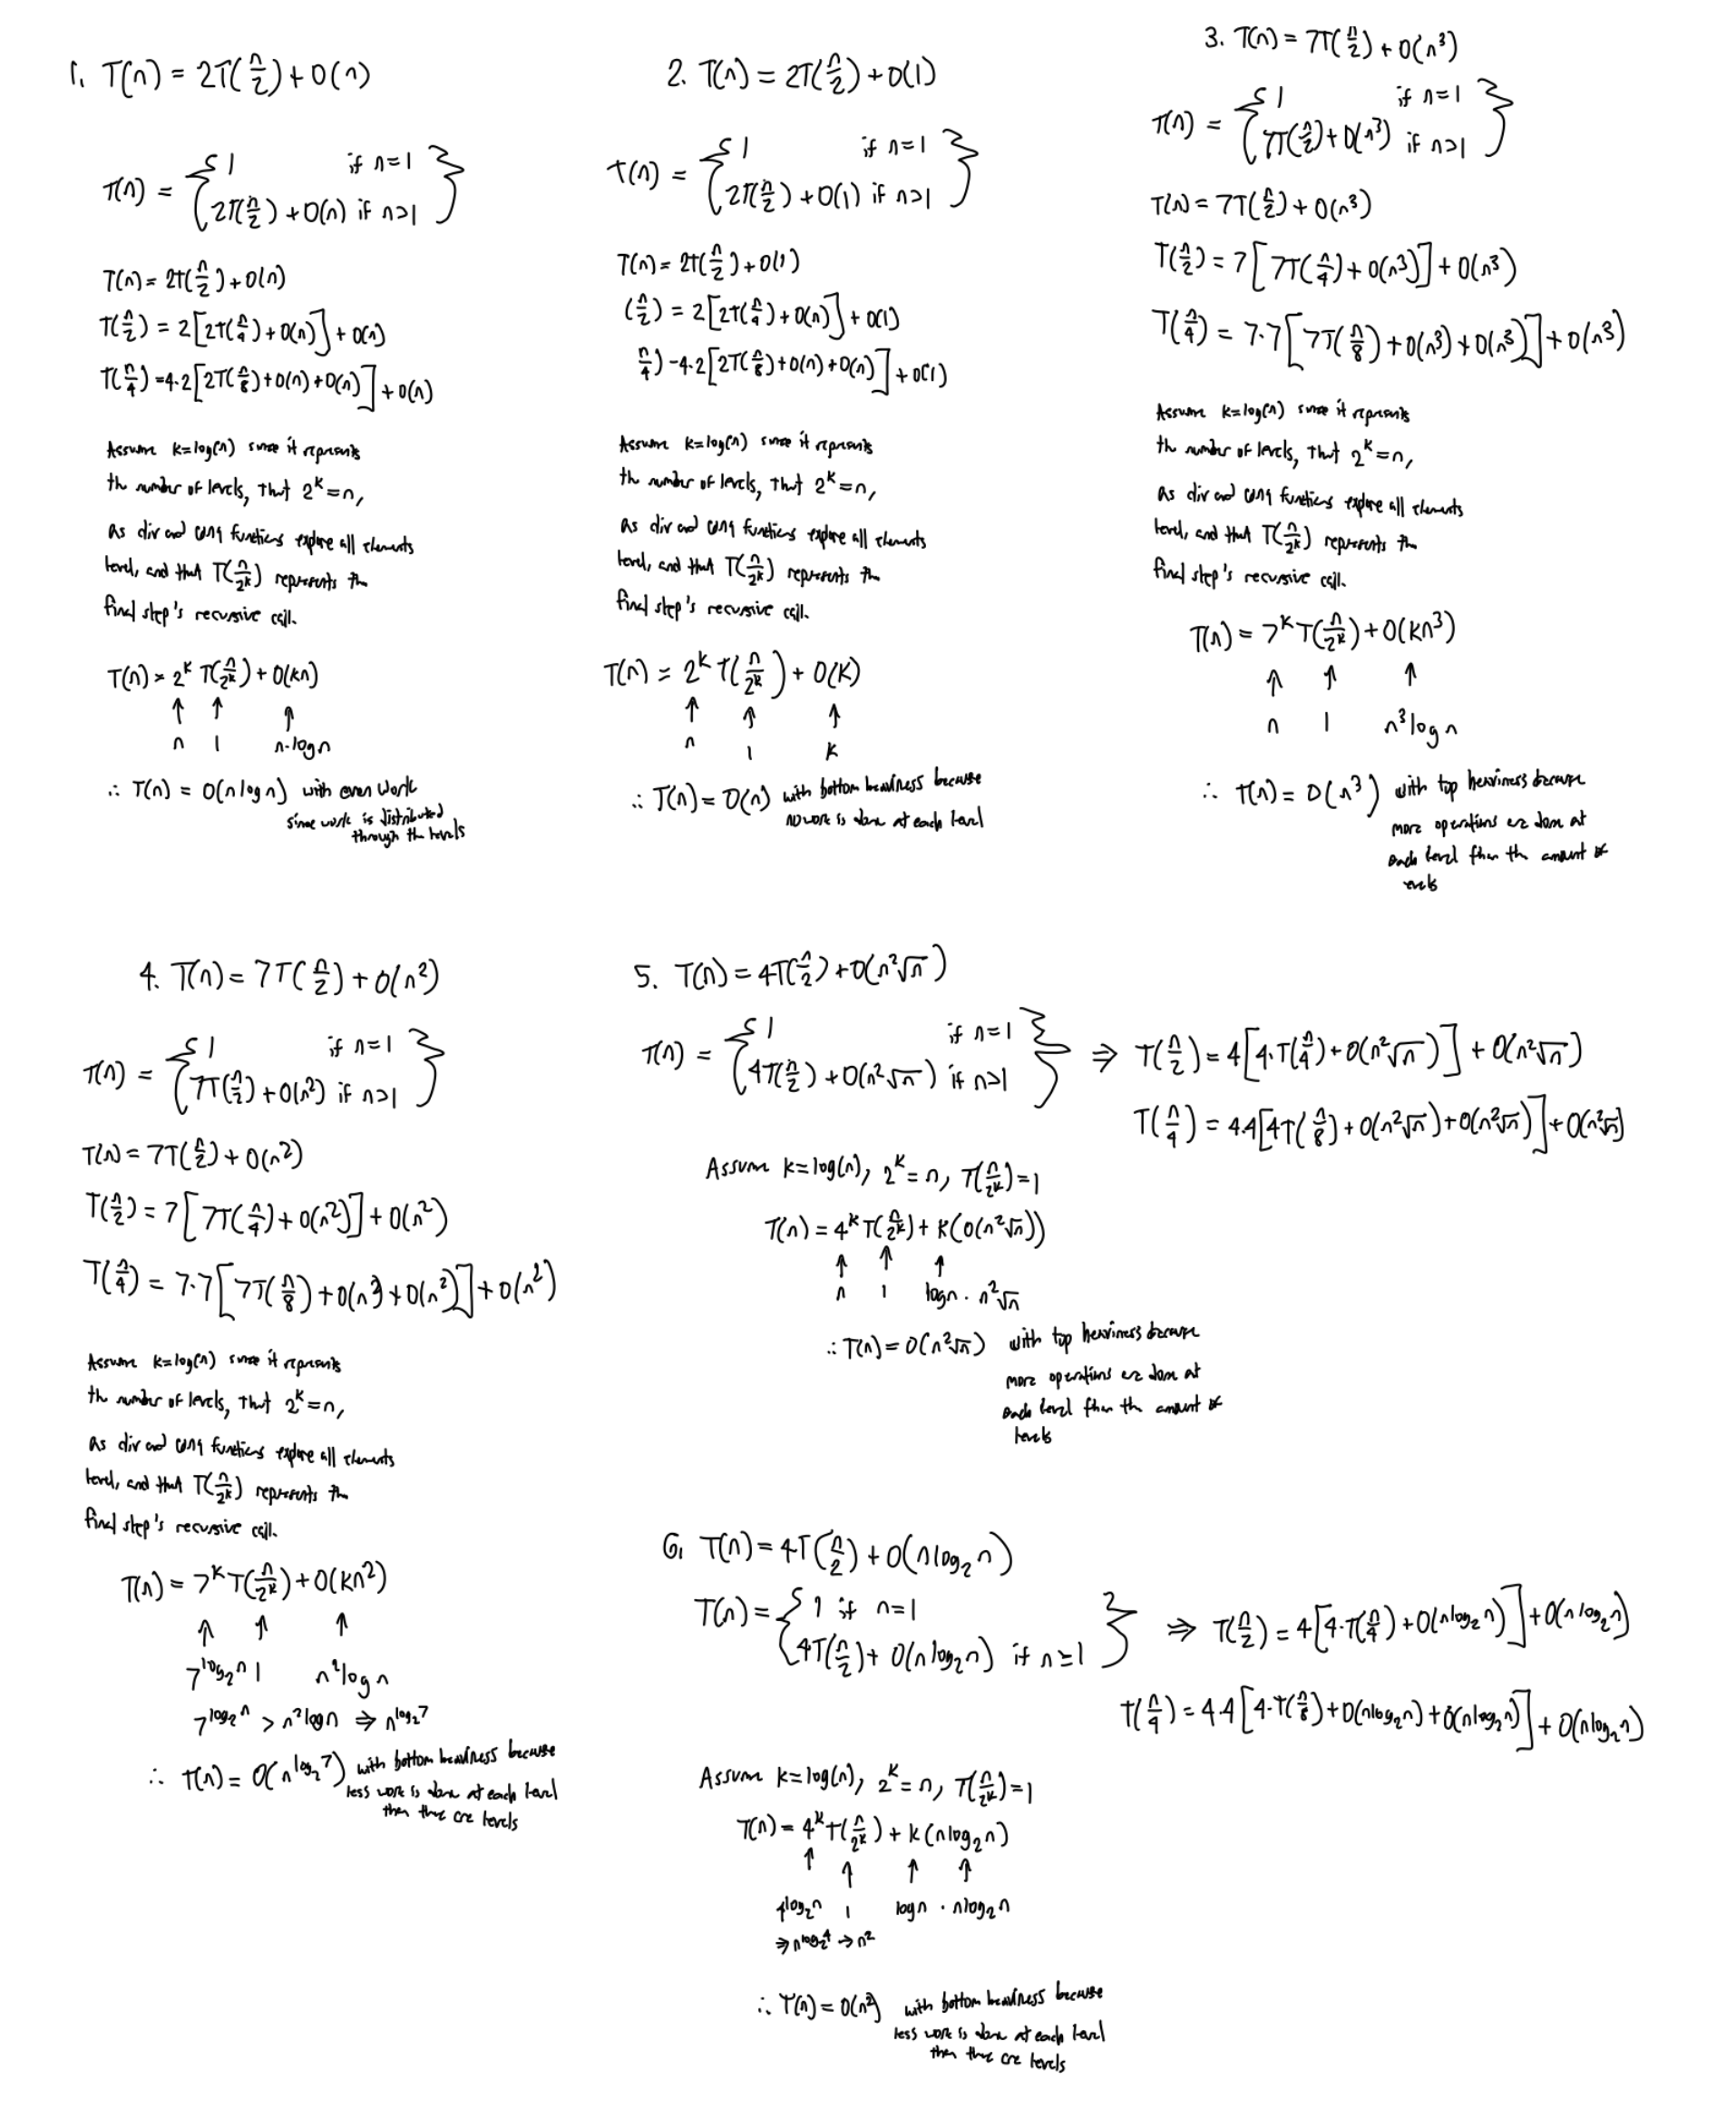 1. T(n) = 2T(n/2) + O(n)
T(n) = { 1 if n=1
2T(n/2) + O(n) if n>1 }
T(n) = 2T(n/2) + O(n)
T(n/2) = 2[2T(n/4) + O(n)] + O(n)
T(n/4) = 4·2[2T(n/8) + O(n) + O(n)] + O(n)
Assume k=log(n) since it represents
the number of levels, that 2^k = n,
as div and conq functions explore all elements
level, and that T(n/2^k) represents the
final step's recursive call.
T(n) = 2^k T(n/2^k) + O(kn)
↑ ↑ ↑
n 1 n·log n
∴ T(n) = O(n log n) with even work
since work is distributed
through the levels
2. T(n) = 2T(n/2) + O(1)
T(n) = { 1 if n=1
2T(n/2) + O(1) if n>1 }
T(n) = 2T(n/2) + O(1)
(n/2) = 2[2T(n/4) + O(n)] + O(1)
n/4) = 4·2[2T(n/8) + O(n) + O(n)] + O(1)
Assume k=log(n) since it represents
the number of levels, that 2^k = n,
as div and conq functions explore all elements
level, and that T(n/2^k) represents the
final step's recursive call.
T(n) = 2^k T(n/2^k) + O(k)
↑ ↑ ↑
n 1 k
∴ T(n) = O(n) with bottom heaviness because
no work is done at each level
3. T(n) = 7T(n/2) + O(n^3)
T(n) = { 1 if n=1
7T(n/2) + O(n^3) if n>1 }
T(n) = 7T(n/2) + O(n^3)
T(n/2) = 7[7T(n/4) + O(n^3)] + O(n^3)
T(n/4) = 7·7[7T(n/8) + O(n^3) + O(n^3)] + O(n^3)
Assume k=log(n) since it represents
the number of levels, that 2^k = n,
as div and conq functions explore all elements
level, and that T(n/2^k) represents the
final step's recursive call.
T(n) = 7^k T(n/2^k) + O(kn^3)
↑ ↑ ↑
n 1 n^3 log n
∴ T(n) = O(n^3) with top heaviness because
more operations are done at
each level than the amount of
levels
4. T(n) = 7T(n/2) + O(n^2)
T(n) = { 1 if n=1
7T(n/2) + O(n^2) if n>1 }
T(n) = 7T(n/2) + O(n^2)
T(n/2) = 7[7T(n/4) + O(n^2)] + O(n^2)
T(n/4) = 7·7[7T(n/8) + O(n^3) + O(n^2)] + O(n^2)
Assume k=log(n) since it represents
the number of levels, that 2^k = n,
as div and conq functions explore all elements
level, and that T(n/2^k) represents the
final step's recursive call.
T(n) = 7^k T(n/2^k) + O(kn^2)
↑ ↑ ↑
7^log₂n 1 n^2 log n
7^log₂n > n^2 log n ⇒ n^log₂7
∴ T(n) = O(n^log₂7) with bottom heaviness because
less work is done at each level
then there are levels
5. T(n) = 4T(n/2) + O(n^2√n)
T(n) = { 1 if n=1
4T(n/2) + O(n^2√n) if n>1 }
⇒ T(n/2) = 4[4·T(n/4) + O(n^2√n)] + O(n^2√n)
T(n/4) = 4·4[4T(n/8) + O(n^2√n) + O(n^2√n)] + O(n^2√n)
Assume k=log(n), 2^k = n, T(n/2^k) = 1
T(n) = 4^k T(n/2^k) + k(O(n^2√n))
↑ ↑ ↑
n 1 logn · n^2√n
∴ T(n) = O(n^2√n) with top heaviness because
more operations are done at
each level than the amount of
levels
6. T(n) = 4T(n/2) + O(n log₂ n)
T(n) = { 1 if n=1
4T(n/2) + O(n log₂n) if n≥1 }
⇒ T(n/2) = 4[4·T(n/4) + O(n log₂ n)] + O(n log₂ n)
T(n/4) = 4·4[4·T(n/8) + O(n log₂ n) + O(n log₂ n)] + O(n log₂ n)
Assume k=log(n), 2^k = n, T(n/2^k) = 1
T(n) = 4^k T(n/2^k) + k(n log₂ n)
↑ ↑ ↑ ↑
4^log₂n 1 logn · n log₂ n
⇒ n^log₂4 → n^2
∴ T(n) = O(n^2) with bottom heaviness because
less work is done at each level
then there are levels